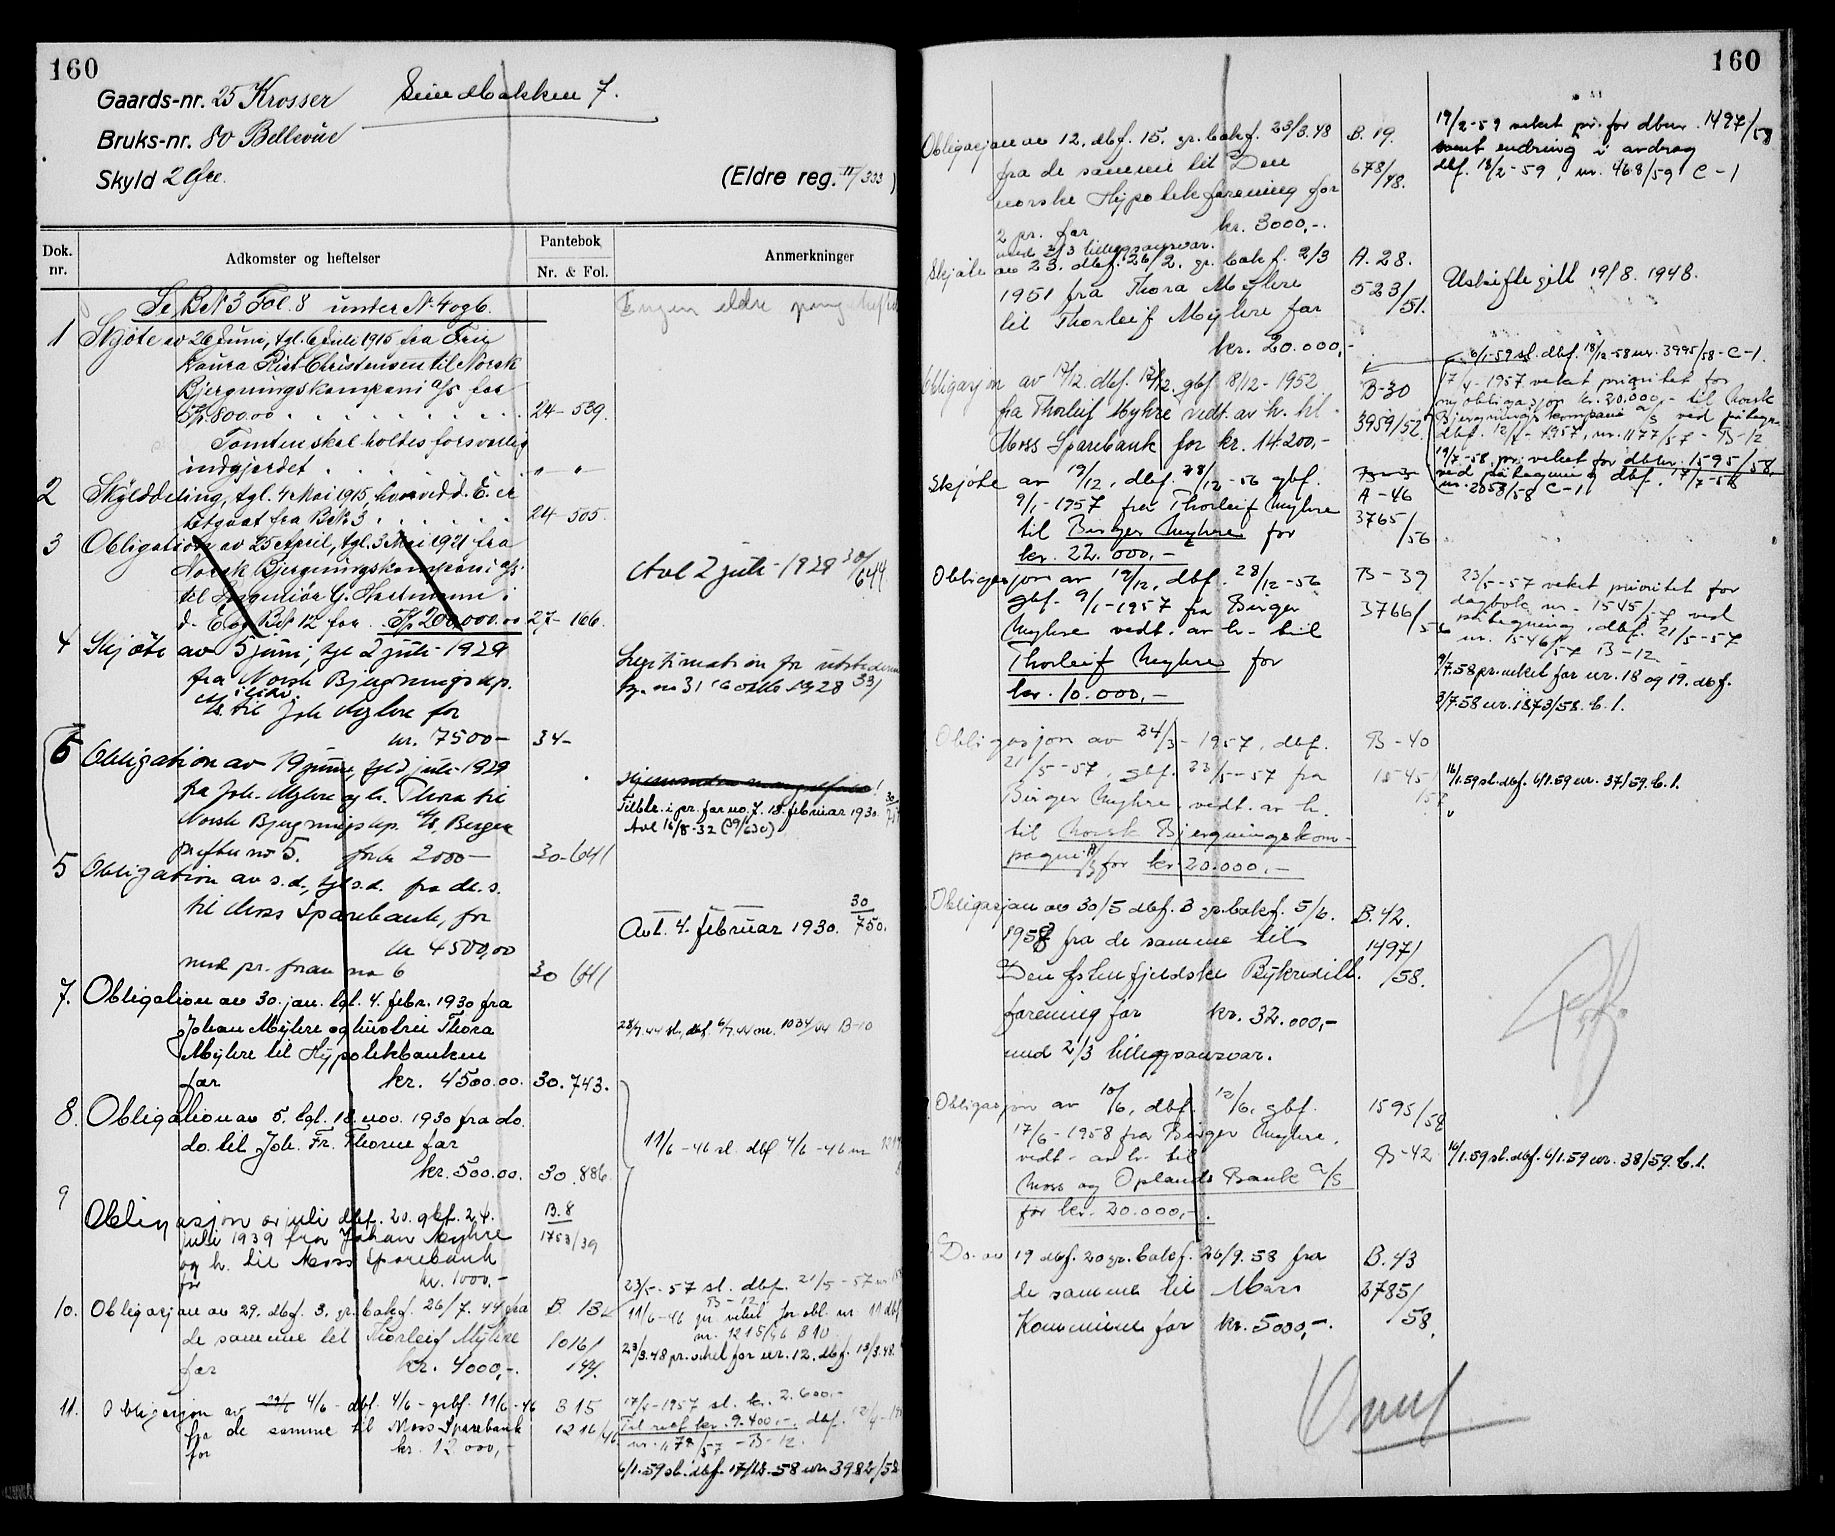 160
Gaards-nr. 25 Krosser
Bruks-nr. 80 Bellevue
Skyld 2 Øre.
(Eldre reg. II/333)
Dok. nr.
Adkomster og heftelser
Pantebok
Nr. & Fol.
Anmerkninger
Se BNo 3 Fol. 8 under No 4 og 6.
Ingen eldre
1 Skjøte av 26 Juni, tgl. 6 Juli 1915 fra Fru
Laura Rist-Christensen til Norsk
Bjergningskompani a/s for
Kr. 800.00 24 - 539.
Tomten skal holdes forsvarlig
indgjerdet
2 Skylddeling, tgl. 4 Mai 1915, hvorved d. E. er
utgaat fra BNo 3 24 - 505.
3 Obligation av 25 April, tgl. 3 Mai 1921 fra
Norsk Bjergningskompani a/s
til Ingeniør G. Hartmann i
d. E. og BNo 12 for Kr 200,000.00 27 - 166.
Avl 2 juli - 1929 30/644
4 Skjøte av 5 juni, tgl 2 juli - 1929
fra Norsk Bjergningskp.
a/s til Joh Myhre for
kr. 7500 - 34 -
Legitimation for utstederen
6 Obligation av 19 juni, tgl 2 juli - 1929
fra Joh. Myhre og h. Thora til
Norsk Bjergningskp. a/s Bergen
pr efter no 5. for kr 2000 - 30 - 641
Tilbk. i pr. for no. 7. 18. februar 1930.
Avl 16/8-32 (39/630)
5 Obligation av s.d., tgl s.d. fra de. s.
til Moss Sparebank, for
kr 4500,00
med pr. foran no 6 30 641
Avl. 4. februar 1930. 30/750.
7. Obligation av 30. jan. tgl. 4. febr. 1930 fra
Johan Myhre og hustru Thora
Myhre til Hypotekbanken
for kr. 4500.00. 30. 743.
28/7.44 sl. dbf. 6/7.44 nr. 1034/44 B-10
8. Obligation av 5. tgl. 18. nov. 1930 fra do.
do. til Joh. Fr. Thorne for
kr. 500.00. 30. 886
11/6 - 46 sl. dbf 4/6 - 46 nr
9 Obligasjon av juli dbf. 20. gbf. 24.
juli 1939 fra Johan Myhre
og h. til Moss Sparebank
for kr. 1000,-
B. 8
1753/39
23/5. - 57 sl. dbf. 21/5 - 57 nr
B - 12
10. Obligasjon av 29. dbf. 3. gr. bokf. 26/7. 44 fra
de samme til Thorleif Myhre
for kr. 4000,-.
B 13
1016/
144.
11/6 - 46 pr viket for obl. nr. 11 dbf
nr. 1215/46 B 10
23/3.48 pr. vikel for nr. 12. dbf. 15/3.48.
11. Obligasjon av 4/6 - dbf. 4/6 - grbf. 11/6 - 46
fra de samme til Moss Sparebank
for kr. 12 000,-
B 15
1216/46
17/4-1957 sl. kr. 2.600.-
Til rest kr. 9.400.-. dbf. 12/4 -
nr. 1178/57 - B - 12.
6/1.59 sl. dbf. 17/12.58 nr 3982/58
160
Obligasjon av 12. dbf. 15. gr. bokf. 23/3.48
fra de samme til Den
norske Hypotekforening for
2 pr. for kr. 3000,-.
med 2/3 tilleggsansvar.
B. 19.
678/48.
19/2-59 veket pr. for dbnr. 1497/58
samt endring i avdrag
dbf. 18/2-59, nr. 468/59 C - 1
Skjøte av 23. dbf. 26/2. gr. bokf. 2/3
1951 fra Thora Myhre
til Thorleif Myhre for
kr. 20.000,-
A. 28.
523/51.
Uskifte gitt 19/8. 1948.
Obligasjon av 17/12. dbf. 17/12. gbf 18/12 - 1952
fra Thorleif Myhre vedt. av h. til
Moss Sparebank for kr. 14.200,-
B-30
3959/52
6/1-59 sl. dbf. 18/12-58 nr. 3995/58 - C-1.
17/4 - 1957 veket prioritet for
ny obligasjon kr. 20.000,- til Norsk
Bjergnings kompani a/s ved påtegn.
dbf. 12/4 - 1957, nr. 1177/57 - B-12
19/7-58. pr. veket for dbnr. 1595/58
ved påtegning dbf. 17/7-58
nr. 2058/58 C-1.
Skjøte av 19/12, dbf. 28/12-56 gbf.
9/1-1957 fra Thorleif Myhre
til Birger Myhre for
kr. 22.000,-
A-46
3765/56
Obligasjon av 19/12, dbf. 28/12-56
gbf. 9/1-1957 fra Birger
Myhre vedt. av h. til
Thorleif Myhre for
kr. 10.000,-
B-39
3766/56
23/5-57 veket prioritet for
dagbok nr. 1545/57 ved
påtegning, dbf. 21/5-57
nr. 1546/57 B-12
9/7.58 pr. veket for nr. 18 og 19. dbf.
3/7.58 nr. 1873/58. C. 1.
Obligasjon av 24/3 - 1957, dbf.
21/5-57, gbf. 23/5-57 fra
Birger Myhre vedt. av h.
til Norsk Bjergningskom-
pagni A/S for kr. 20.000,-
B-40
1545/
16/1.59 sl. dbf. 6/1.59 nr. 37/59. C. 1.
Obligasjon av 30/5 dbf. 3 gr. bokf. 5/6.
1958 fra de samme til
Den Østenfjeldske Bykreditt-
forening for kr. 32.000,-
med 2/3 tilleggsansvar.
B. 42.
1497/58.
Obligasjon av 10/6, dbf. 12/6, gbf.
17/6-1958 fra Birger Myhre,
vedt. av h. til
Moss og Oplands Bank a/s
for kr. 20.000,-.
1595/58
B-42
16/1.59 sl. dbf. 6/1.59 nr. 38/59. C. 1.
Do. av 19 dbf. 20 gr. bokf. 26/9.58 fra
de samme til Moss
Kommune for kr. 5000,-.
B. 43
2785/58.